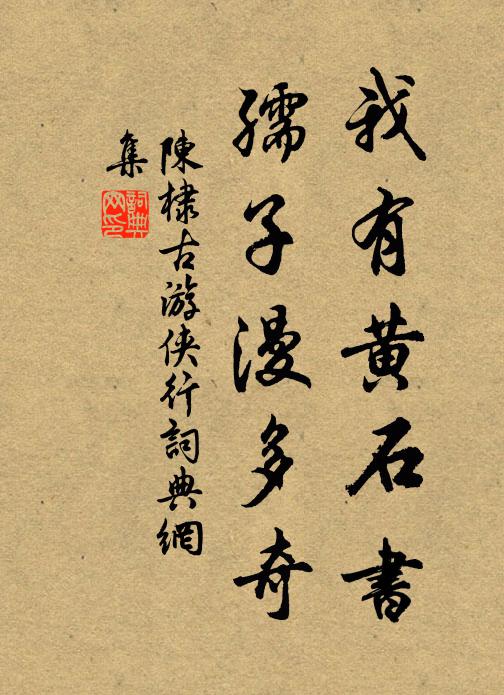 我有黄石書
孺子漫多奇
陳棣古游俠行詞典網
集
詞典
网印